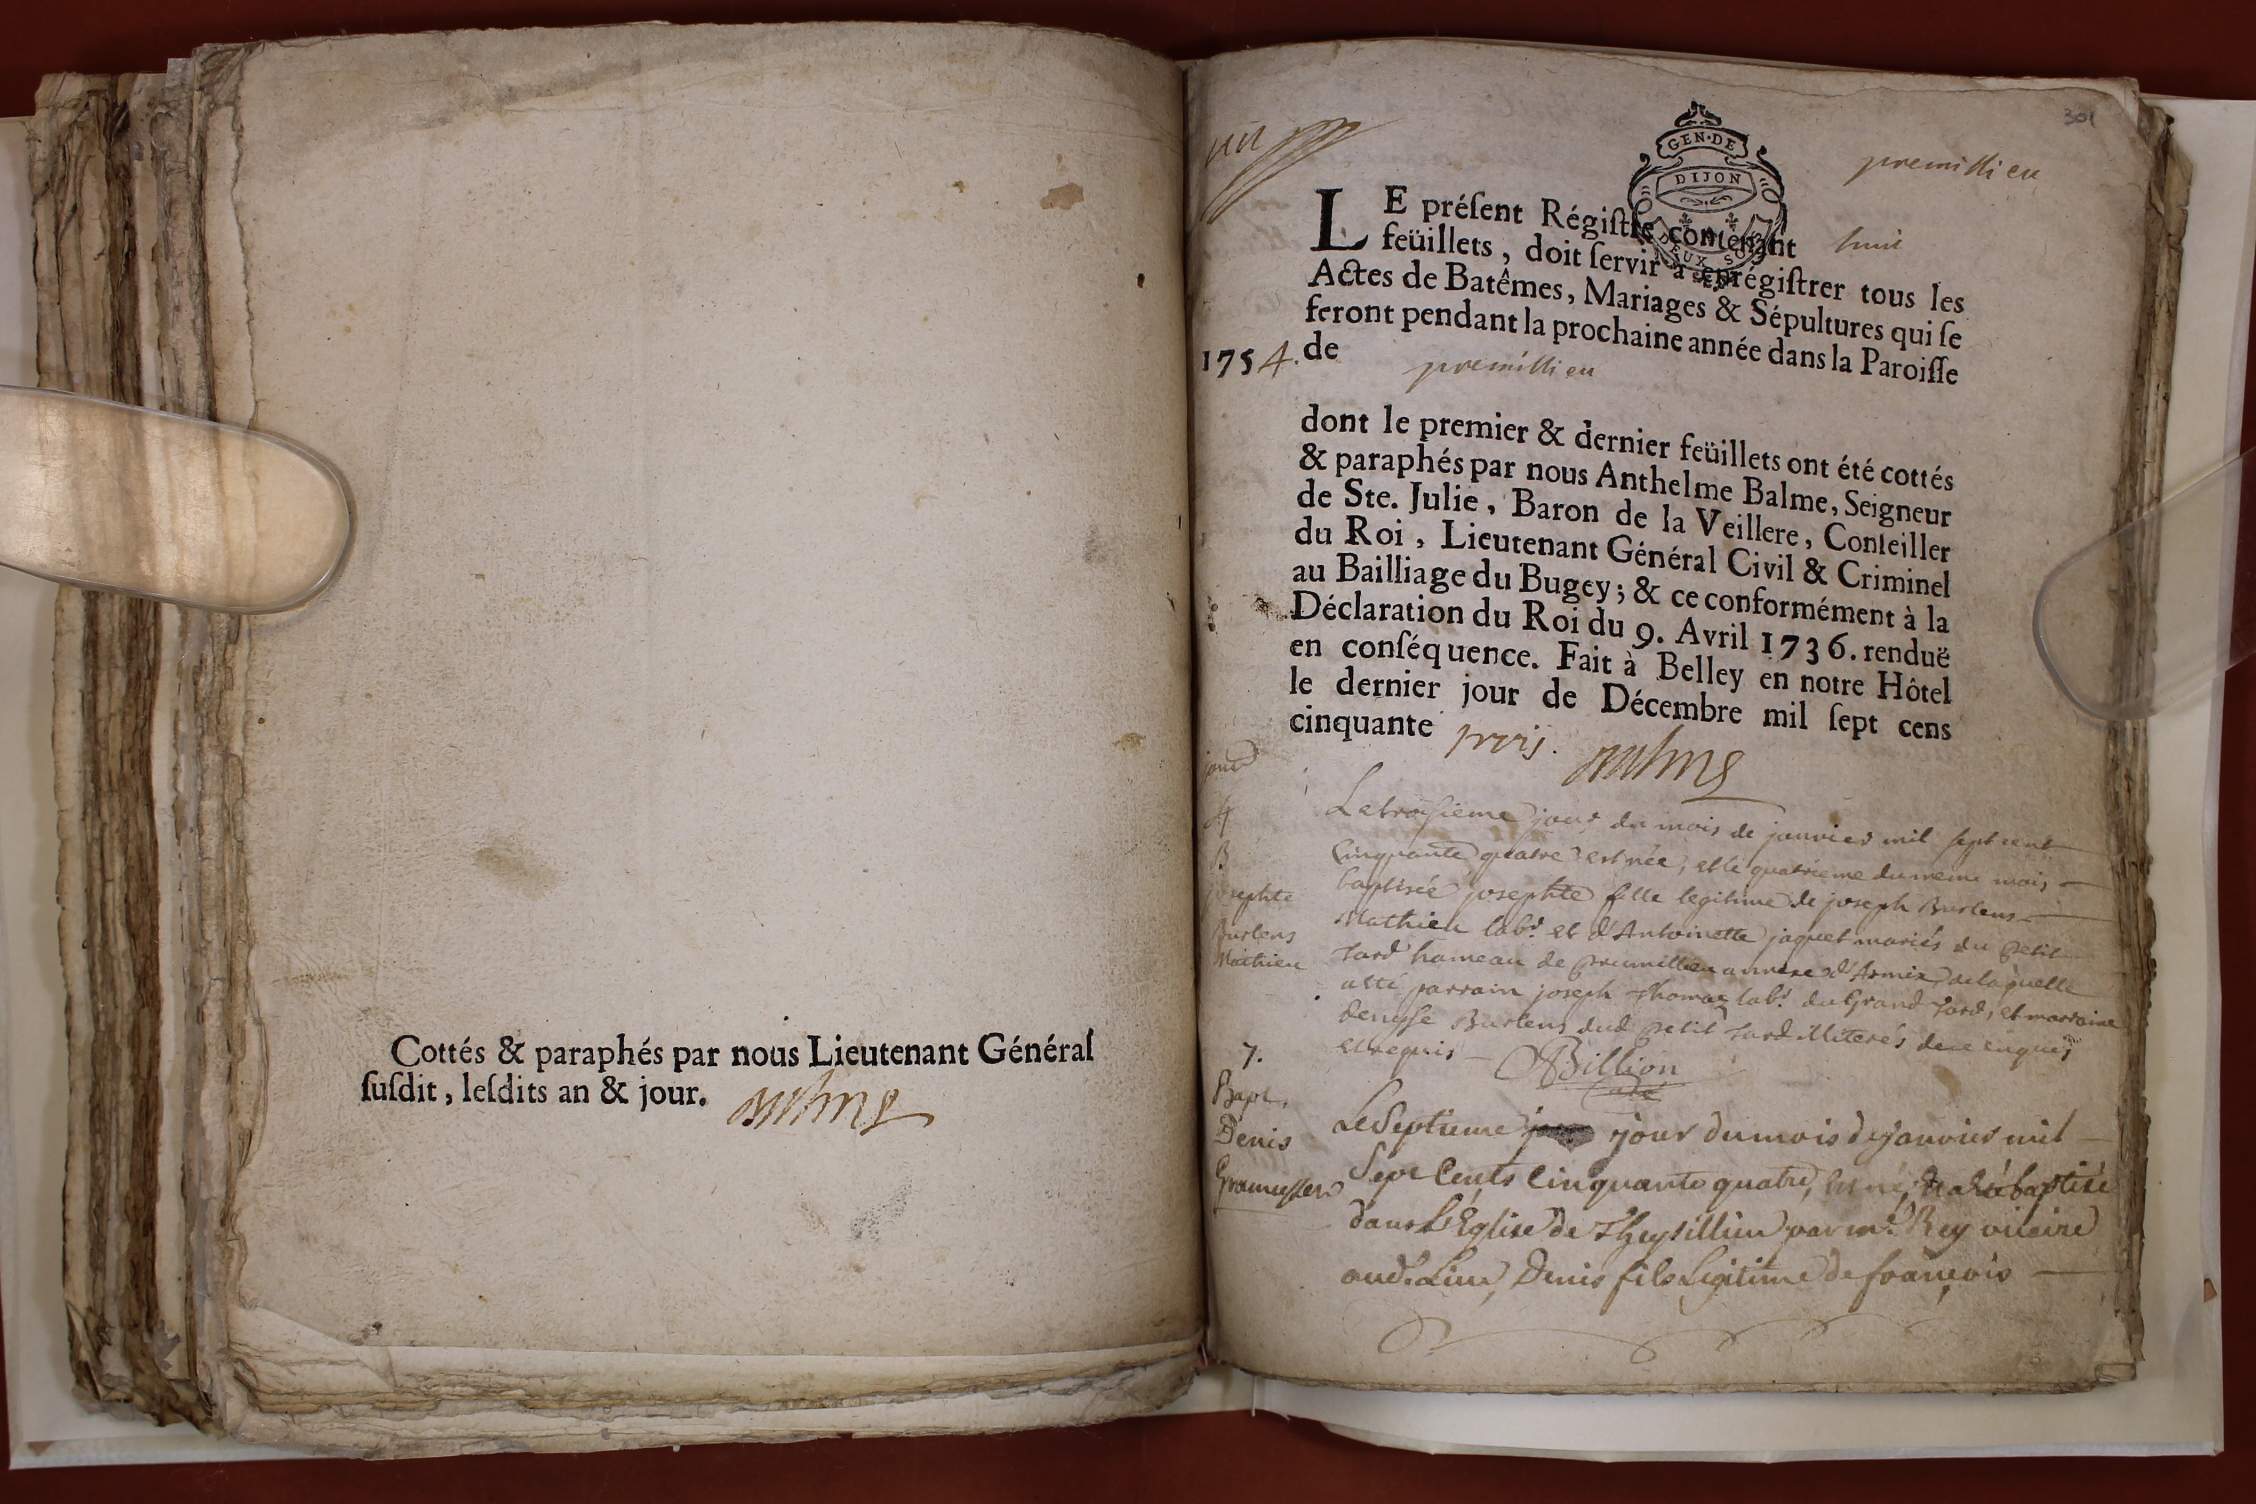 Cottés & paraphés par nous Lieutenant Général
ſuſdit, leſdits an & jour.
301
GEN·DE
DIJON
DEUX SOLS
premillieu
LE préſent Régiſtre contenant huit
feüillets, doit ſervir à enrégiſtrer tous les
Actes de Batêmes, Mariages & Sépultures qui ſe
feront pendant la prochaine année dans la Paroiſſe
1754. de premillieu
dont le premier & dernier feüillets ont été cottés
& paraphés par nous Anthelme Balme, Seigneur
de Ste. Julie, Baron de la Veillere, Conſeiller
du Roi, Lieutenant Général Civil & Criminel
au Bailliage du Bugey; & ce conformément à la
Déclaration du Roi du 9. Avril 1736. renduë
en conſéquence. Fait à Belley en notre Hôtel
le dernier jour de Décembre mil ſept cens
cinquante trois.
4
B
josephte
Burlens
Mathieu
Le troisieme jour du mois de janvier mil sept cent
cinquante quatre est née, et le quatrieme du meme mois
baptisée josephte fille legitime de joseph Burlens
Mathieu labr. et d'Antoinette jaquet mariés du petit
Tard hameau de premillieu annexe d'Armix de laquelle
a été parrain joseph Thomaz labr. du Grand Tard, et marraine
denyse Burlens dud petit Tard illiterés de ce enquis
et requis Billion
Curé
7.
Bapt.
Denis
Le Septieme jour du mois de janvier mil
Sept Cents Cinquante quatre, est né, et a été baptisé
dans l'Eglise de Thezillieu par mr. Rey vicaire
aud. Lieu, Denis fils Legitime de françois